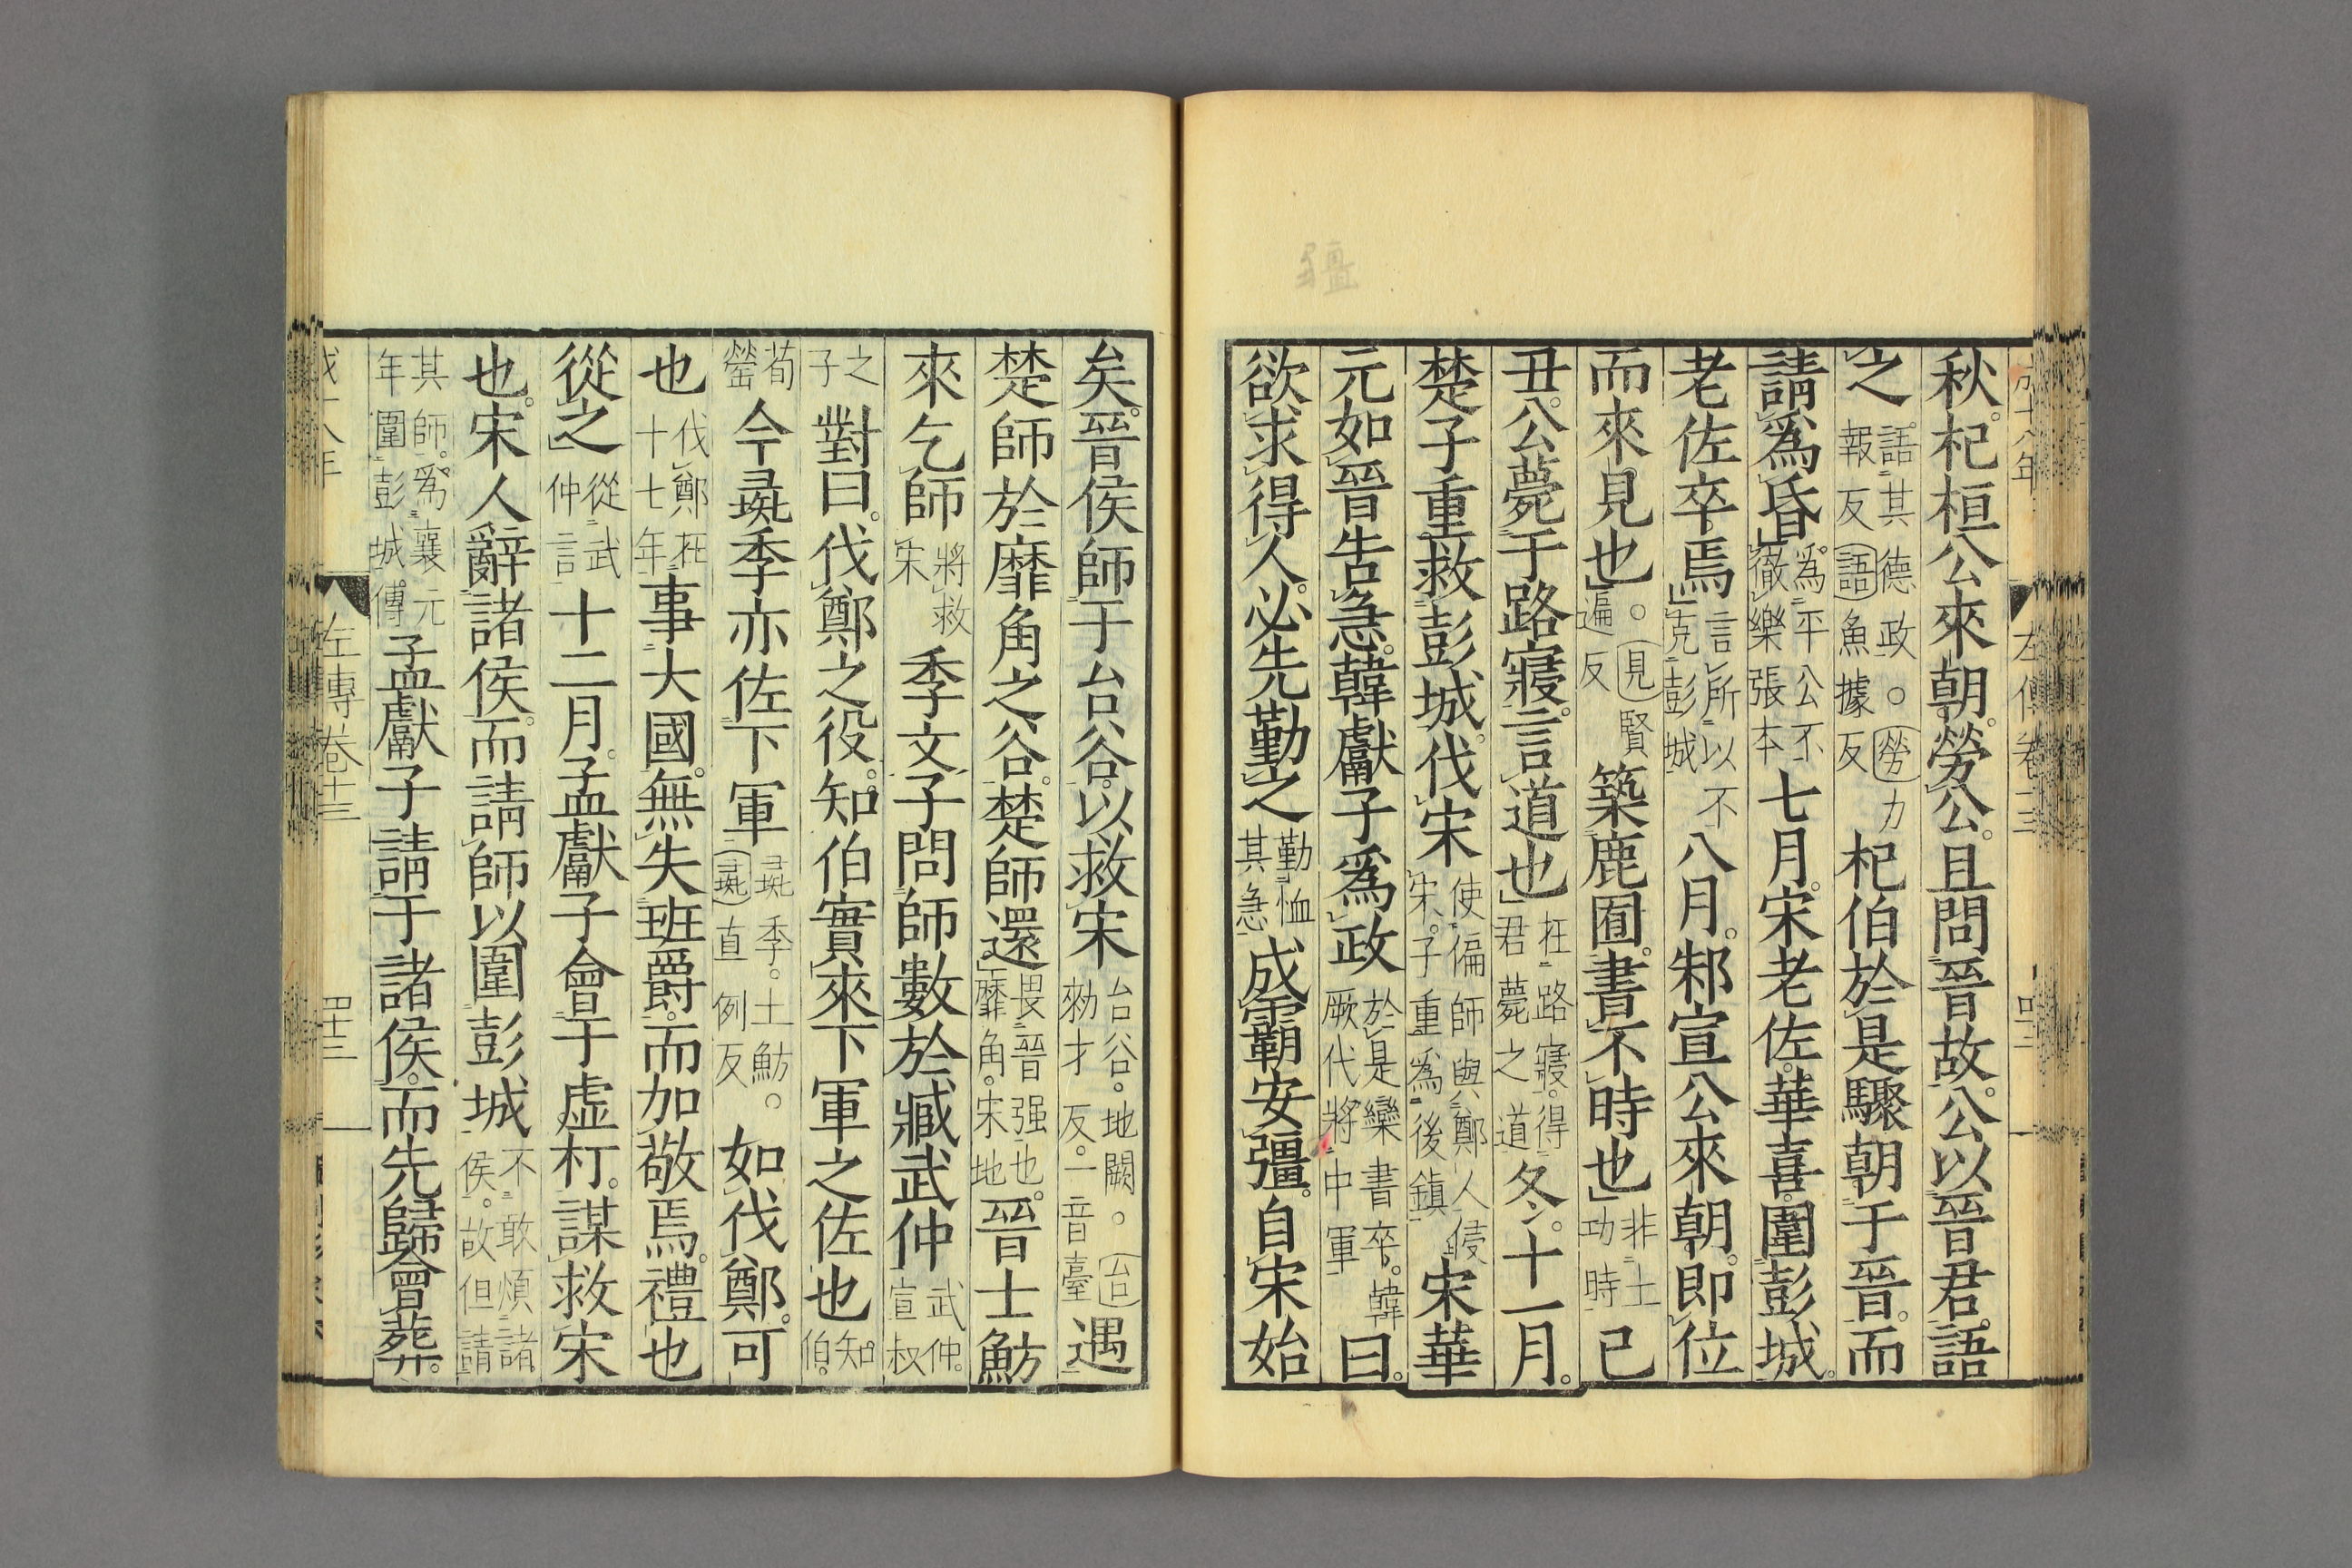 彊
成十八年 左傳卷十三 四十三
秋。杞桓公來朝。勞公。且問晉故。公以晉君。語
之。語其德政。○勞力報反語魚據反杞伯於是驟朝于晉。而
請爲昏。爲平公不徹樂張本七月。宋老佐。華喜。圍彭城。
老佐卒焉言所以不克彭城八月。邾宣公來朝。即位
而來見也。○見賢遍反築鹿囿。書不時也非土功時己
丑。公薨于路寢。言道也在路寢。得君薨之道冬。十一月。
楚子重救彭城。伐宋使偏師與鄭人侵宋。子重爲後鎮宋華
元如晉告急。韓獻子爲政於是欒書卒。韓厥代將中軍曰。
欲求得人。必先勤之勤恤其急成霸安彊。自宋始
矣。晉侯師于台谷。以救宋台谷。地闕。○台勑才反。一音臺遇
楚師於靡角之谷。楚師還畏晉强也。靡角。宋地晉士魴
來乞師將救宋季文子問師數於臧武仲武仲。宣叔
之子對曰。伐鄭之役。知伯實來下軍之佐也知伯。
荀罃今彘季亦佐下軍彘季。士魴。○彘直例反如伐鄭。可
也伐鄭在十七年事大國。無失班爵。而加敬焉。禮也
從之從武仲言十二月。孟獻子會于虛朾。謀救宋
也。宋人辭諸侯。而請師以圍彭城不敢煩諸侯。故但請
其師。爲襄元年圍彭城傳孟獻子請于諸侯。而先歸會葬。
成十八年 左傳卷十三 四十三